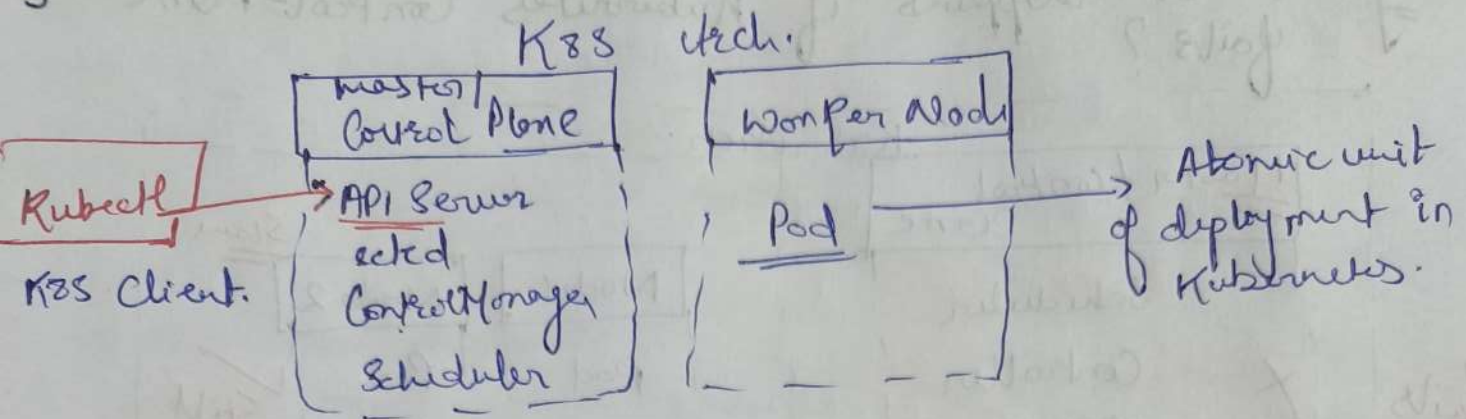 K8S Arch.
Master/
Control Plane
Worker Node
Kubectl
K8S Client.
API Server
etcd
Control Manager
Scheduler
Pod
Atomic unit
of deployment in
Kubernetes.